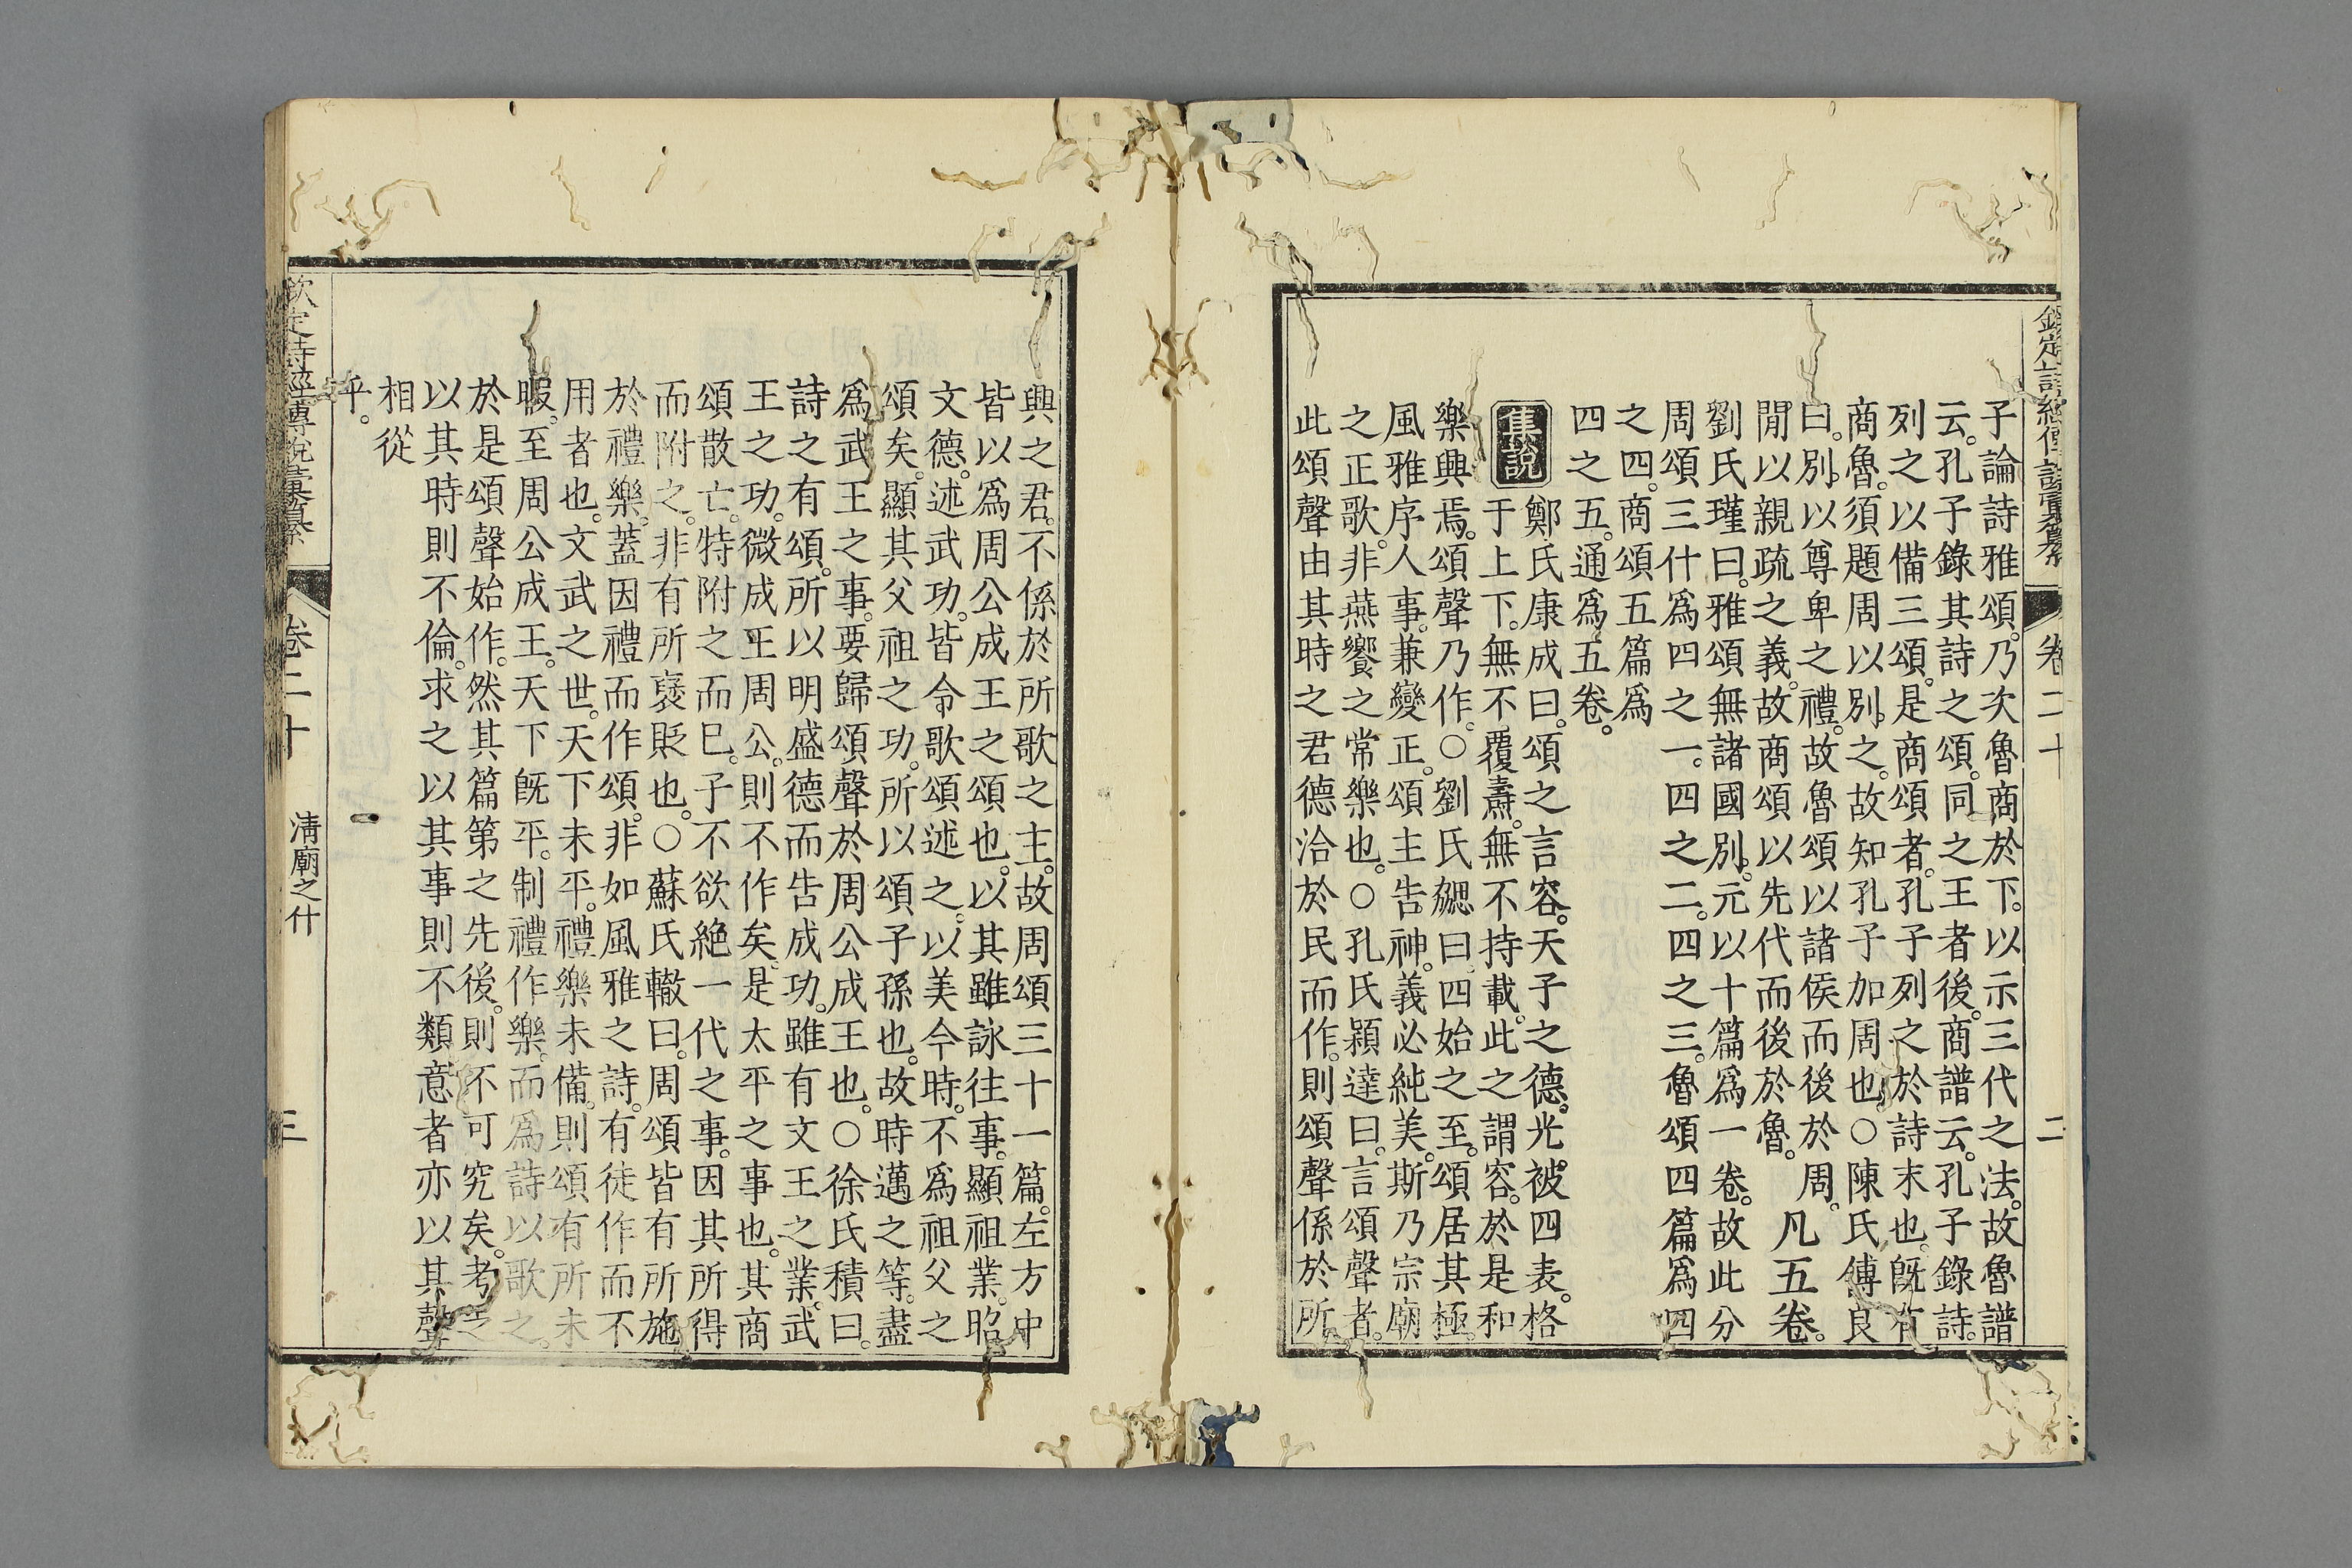 欽定詩經傳說彙纂 卷二十 二
子論詩雅頌。乃次魯商於下。以示三代之法。故魯譜
云。孔子錄其詩之頌。同之王者後。商譜云。孔子錄詩。
列之以備三頌。是商頌者。孔子列之於詩末也。旣有
商魯。須題周以別之。故知孔子加周也。○陳氏傅良
曰。別以尊卑之禮。故魯頌以諸侯而後於周。
閒以親疏之義。故商頌以先代而後於魯。凡五卷。
劉氏瑾曰。雅頌無諸國別。元以十篇爲一卷。故此分
周頌三什爲四之一。四之二。四之三。魯頌四篇爲四
之四。商頌五篇爲
四之五。通爲五卷。
集說 鄭氏康成曰。頌之言容。天子之德。光被四表。格
于上下。無不覆燾。無不持載。此之謂容。於是和
樂興焉。頌聲乃作。○劉氏勰曰。四始之至。頌居其極。
風雅序人事。兼變正。頌主告神。義必純美。斯乃宗廟
之正歌。非燕饗之常樂也。○孔氏穎達曰。言頌聲者。
此頌聲由其時之君德洽於民而作。則頌聲係於所
興之君。不係於所歌之主。故周頌三十一篇。左方中
皆以爲周公成王之頌也。以其雖詠往事。顯祖業。昭
文德。述武功。皆令歌頌述之。以美今時。不爲祖父之
頌矣。顯其父祖之功。所以頌子孫也。故時邁之等。盡
爲武王之事。要歸頌聲於周公成王也。○徐氏積曰。
詩之有頌。所以明盛德而告成功。雖有文王之業。武
王之功。微成王周公。則不作矣。是太平之事也。其商
頌散亡。特附之而已。子不欲絶一代之事。因其所得
而附之。非有所褒貶也。○蘇氏轍曰。周頌皆有所施
於禮樂。蓋因禮而作頌。非如風雅之詩。有徒作而不
用者也。文武之世。天下未平。禮樂未備。則頌有所未
暇。至周公成王。天下旣平。制禮作樂。而爲詩以歌之。
於是頌聲始作。然其篇第之先後。則不可究矣。考之
以其時則不倫。求之以其事則不類意者亦以其聲
相從
乎。
欽定詩經傳說彙纂 卷二十 淸廟之什 三